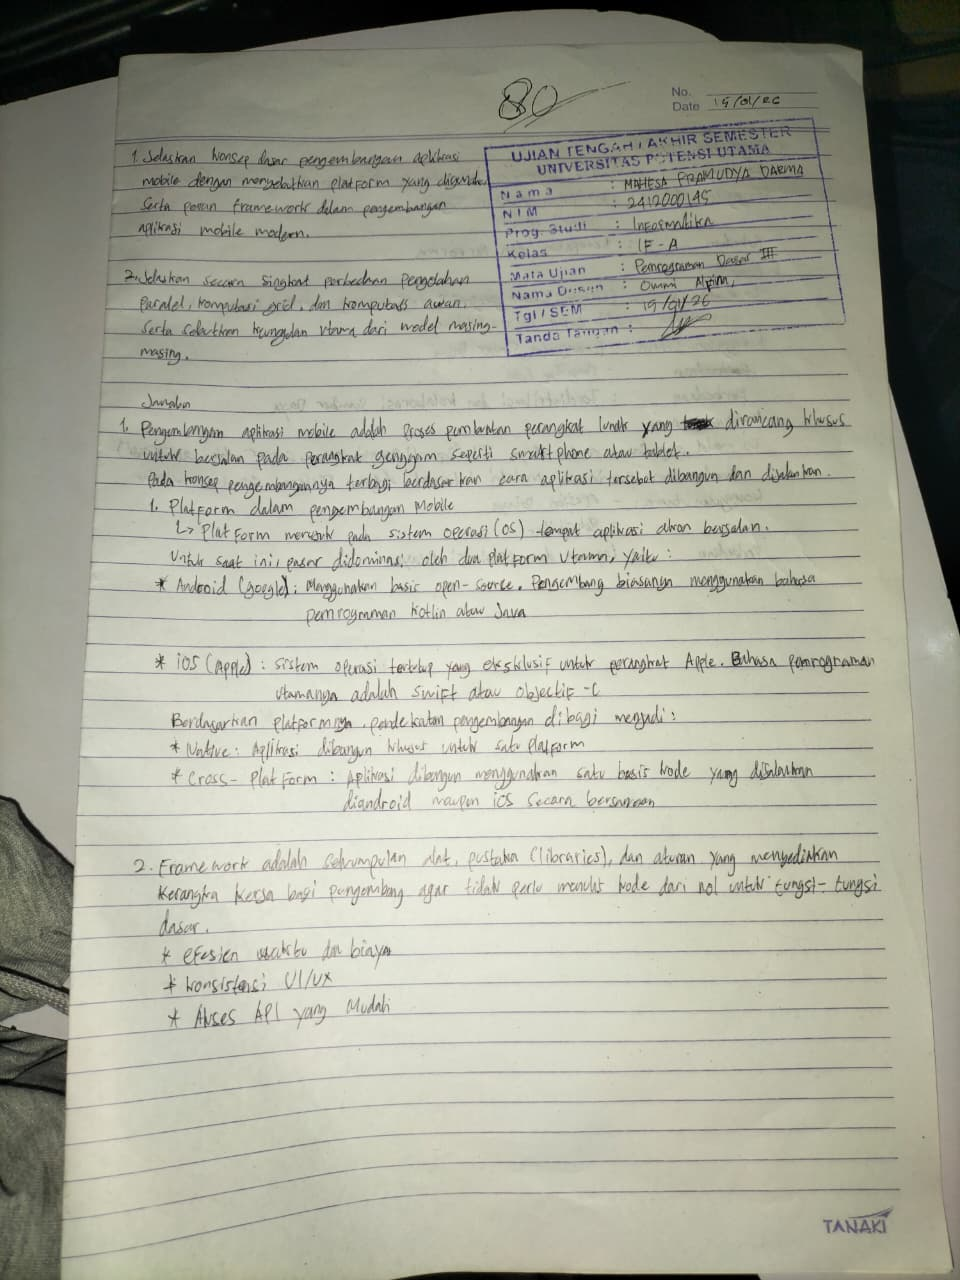 80
No.
Date 19/01/26
UJIAN TENGAH / AKHIR SEMESTER
UNIVERSITAS POTENSI UTAMA
Nama : MAHESA PRAMUDYA DARMA
NIM : 2412000145
Prog. Studi : Informatika
Kelas : IF-A
Mata Ujian : Pemrograman Dasar III
Nama Dosen : Ommi Alpim,
Tgl / SEM : 19/01/26
Tanda Tangan :
1. Jelaskan konsep dasar pengembangan aplikasi
mobile dengan menyebutkan platform yang digunakan
serta peran framework dalam pengembangan
aplikasi mobile modern.
2. Jelaskan secara singkat perbedaan pengolahan
paralel, komputasi grid, dan komputasi awan.
serta sebutkan keunggulan utama dari model masing-
masing.
Jawaban
1. Pengembangan aplikasi mobile adalah proses pembuatan perangkat lunak yang dirancang khusus
untuk berjalan pada perangkat genggam seperti smartphone atau tablet.
Pada konsep pengembangannya terbagi berdasarkan cara aplikasi tersebut dibangun dan dijalankan.
1. Platform dalam pengembangan Mobile
↳ Platform merujuk pada sistem operasi (OS) tempat aplikasi akan berjalan.
Untuk saat ini, pasar didominasi oleh dua platform utama, yaitu :
* Android (Google) : Menggunakan basis open-source. Pengembang biasanya menggunakan bahasa
pemrograman Kotlin atau Java
* iOS (Apple) : sistem operasi tertutup yang eksklusif untuk perangkat Apple. Bahasa pemrograman
utamanya adalah swift atau objectif-C
Berdasarkan platformnya, pendekatan pengembangan dibagi menjadi :
* Native : Aplikasi dibangun khusus untuk satu platform
* Cross-Platform : Aplikasi dibangun menggunakan satu basis kode yang dijalankan
diandroid maupun iOS secara bersamaan
2. Framework adalah sekumpulan alat, pustaka (libraries), dan aturan yang menyediakan
kerangka kerja bagi pengembang agar tidak perlu menulis kode dari nol untuk fungsi-fungsi
dasar.
* efesien waktu dan biaya
* konsistensi UI/UX
* Akses API yang Mudah
TANAKI